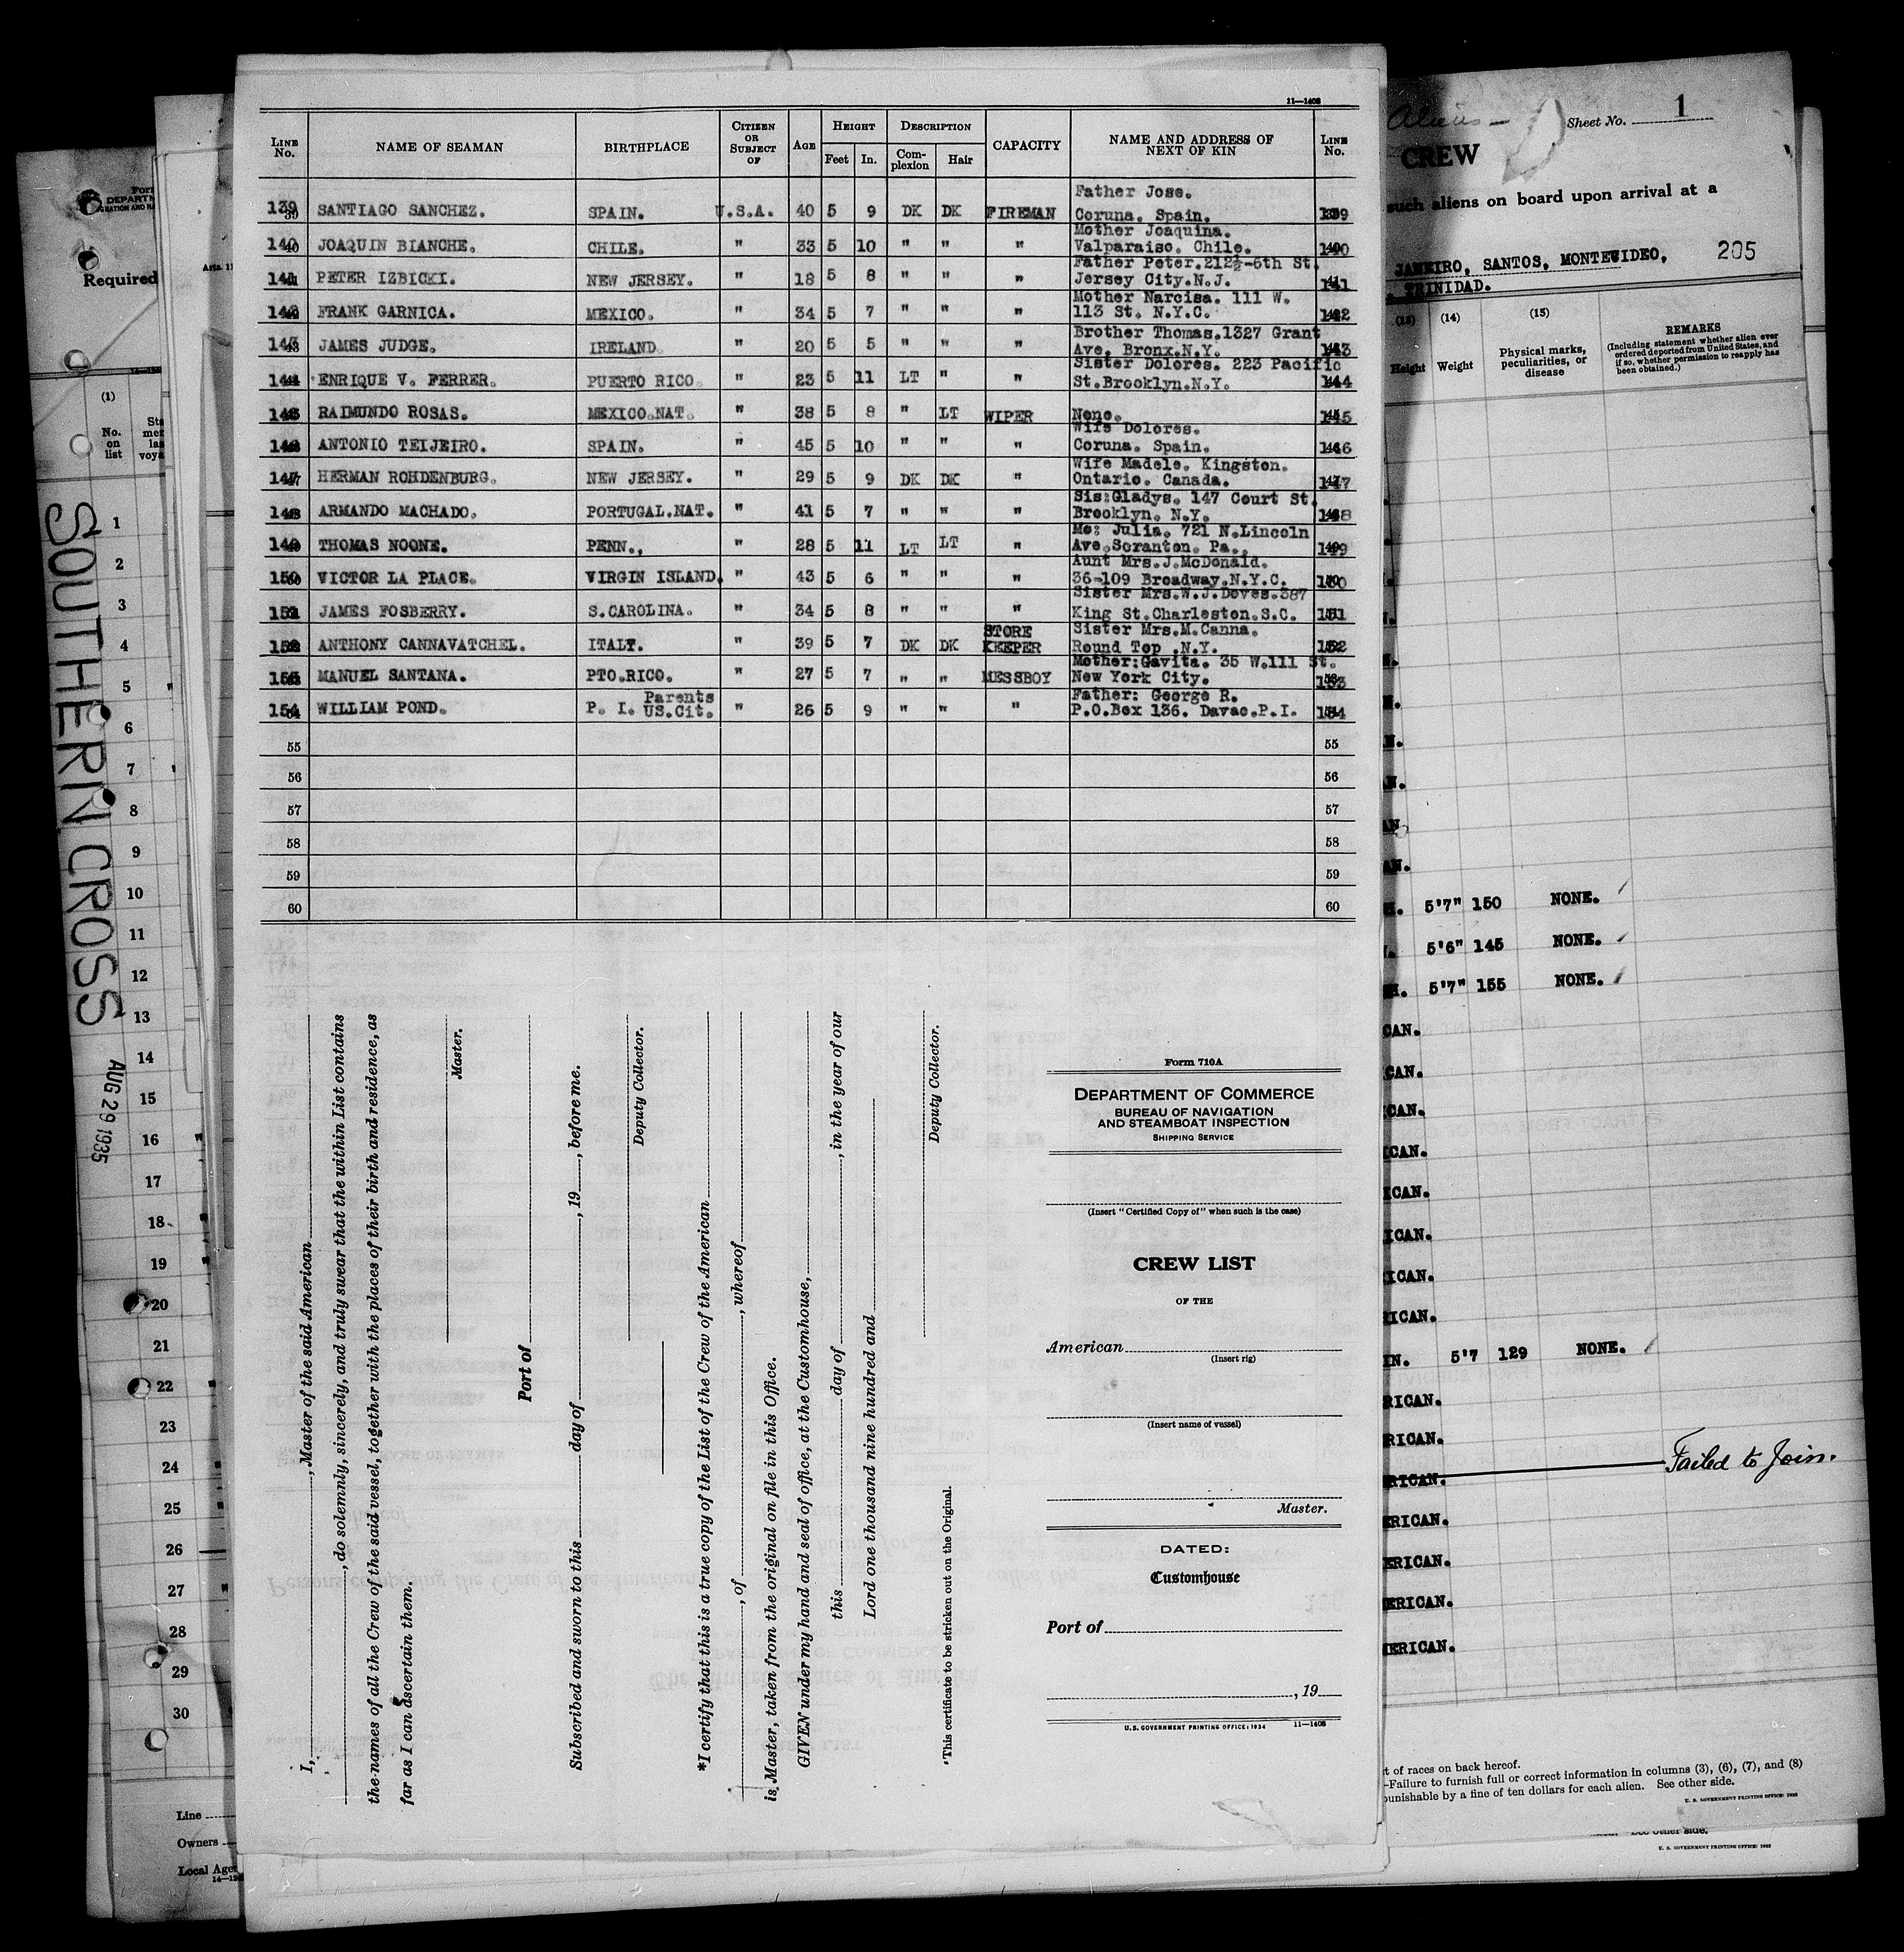 11—1408
LINE No. NAME OF SEAMAN BIRTHPLACE CITIZEN OR SUBJECT OF AGE HEIGHT Feet In. DESCRIPTION Complexion Hair CAPACITY NAME AND ADDRESS OF NEXT OF KIN LINE No.
139 SANTIAGO SANCHEZ. SPAIN. U.S.A. 40 5 9 DK DK FIREMAN Father Jose. Coruna. Spain. 139
140 JOAQUIN BIANCHE. CHILE. " 33 5 10 " " " Mother Joaquina. Valparaiso. Chile. 140
141 PETER IZBICKI. NEW JERSEY. " 18 5 8 " " " Father Peter.212½-6th St. Jersey City.N.J. 141
142 FRANK GARNICA. MEXICO. " 34 5 7 " " " Mother Narcisa. 111 W. 113 St. N.Y.C. 142
143 JAMES JUDGE. IRELAND. " 20 5 5 " " " Brother Thomas.1327 Grant Ave. Bronx.N.Y. 143
144 ENRIQUE V. FERRER. PUERTO RICO. " 23 5 11 LT " " Sister Dolores. 223 Pacific St.Brooklyn.N.Y. 144
145 RAIMUNDO ROSAS. MEXICO.NAT. " 38 5 8 " LT WIPER None. 145
146 ANTONIO TEIJEIRO. SPAIN. " 45 5 10 " " " Wife Dolores. Coruna. Spain. 146
147 HERMAN ROHDENBURG. NEW JERSEY. " 29 5 9 DK DK " Wife Madele. Kingston. Ontario. Canada. 147
148 ARMANDO MACHADO. PORTUGAL.NAT. " 41 5 7 " " " Sis:Gladys. 147 Court St. Brooklyn. N.Y. 148
149 THOMAS NOONE. PENN., " 28 5 11 LT LT " Mo: Julia. 721 N.Lincoln Ave.Scranton. Pa.. 149
150 VICTOR LA PLACE. VIRGIN ISLAND. " 43 5 6 " " " Aunt Mrs.J.McDonald. 36-109 Broadway.N.Y.C. 150
151 JAMES FOSBERRY. S.CAROLINA. " 34 5 8 " " " Sister Mrs.W.J.Doves.387 King St.Charleston.S.C. 151
152 ANTHONY CANNAVATCHEL. ITALY. " 39 5 7 DK DK STORE KEEPER Sister Mrs.M.Canna. Round Top .N.Y. 152
153 MANUEL SANTANA. PTO.RICO. " 27 5 7 " " MESSBOY Mother:Gavita. 35 W.111 St. New York City. 153
154 WILLIAM POND. P. I. Parents US.Cit. " 26 5 9 " " " Father: George R. P.O.Box 136. Davao.P.I. 154
55 55
56 56
57 57
58 58
59 59
60 60
I, , Master of the said American
, do solemnly, sincerely, and truly swear that the within List contains
the names of all the Crew of the said vessel, together with the places of their birth and residence, as
far as I can ascertain them.
Master.
Port of
Subscribed and sworn to this day of , 19 , before me.
Deputy Collector.
*I certify that this is a true copy of the List of the Crew of the American
, of , whereof
is Master, taken from the original on file in this Office.
GIVEN under my hand and seal of office, at the Customhouse,
this day of , in the year of our
Lord one thousand nine hundred and
Deputy Collector.
*This certificate to be stricken out on the Original.
Form 710A
DEPARTMENT OF COMMERCE
BUREAU OF NAVIGATION
AND STEAMBOAT INSPECTION
SHIPPING SERVICE
(Insert "Certified Copy of" when such is the case)
CREW LIST
OF THE
American
(Insert rig)
(Insert name of vessel)
Master.
DATED:
Customhouse
Port of
, 19
U.S. GOVERNMENT PRINTING OFFICE: 1934 11—1408
Required
(1)
No. on list
SOUTHERN CROSS
AUG 29 1935
1
2
3
4
5
6
7
8
9
10
11
12
13
14
15
16
17
18
19
20
21
22
23
24
25
26
27
28
29
30
Line
Owners
Local Agen
Aliens —
Sheet No. 1
CREW
such aliens on board upon arrival at a
JANEIRO, SANTOS, MONTEVIDEO, 205
TRINIDAD.
(13) (14) (15)
Height Weight Physical marks, peculiarities, or disease
REMARKS
(Including statement whether alien ever ordered deported from United States, and if so, whether permission to reapply has been obtained.)
5'7" 150 NONE.
5'6" 145 NONE.
5'7" 155 NONE.
CAN.
CAN.
CAN.
ICAN.
ICAN.
ICAN.
ICAN.
RICAN.
IN. 5'7 129 NONE.
RICAN.
RICAN.
RICAN. Failed to Join.
ERICAN.
ERICAN.
MERICAN.
MERICAN.
t of races on back hereof.
—Failure to furnish full or correct information in columns (3), (6), (7), and (8)
punishable by a fine of ten dollars for each alien. See other side.
U. S. GOVERNMENT PRINTING OFFICE: 1933
See other side.
U. S. GOVERNMENT PRINTING OFFICE: 1933